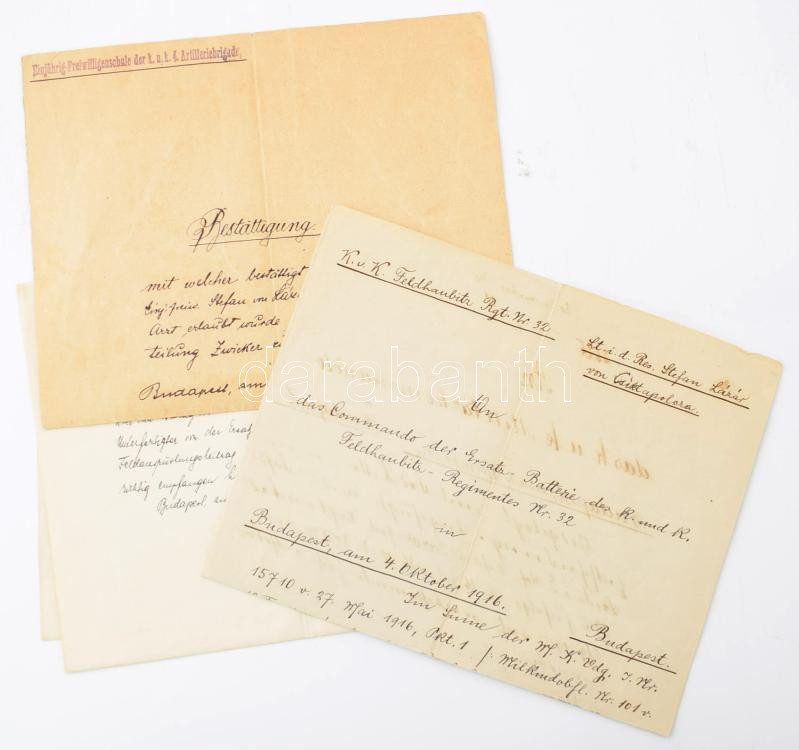 Einjährig-Freiwilligenschule der k. u. k. 4. Artilleriebrigade,
Bestättigung.
mit welcher bestättigt
Einj. freiw. Stefan von Lázár
Arzt, erlaubt wurde
teilung Zwicker
Budapest, am
Unterfertigter von der
Feldausrüstungsbeitrag
richtig empfangen
Budapest, am
K. u. K. Feldhaubitz Rgt. Nr. 32
Lt. i. d. Res. Stefan Lázár
von
An
das Commando der Ersatz-Batterie des K. und K.
Feldhaubitz-Regimentes Nr. 32
in
Budapest, am 4. Oktober 1916.
Budapest.
Im Sinne der M. K. Vdg. I. Nr.
15710 v. 27. Mai 1916, Pkt. 1 /: Nr. 101 v.
darabanth